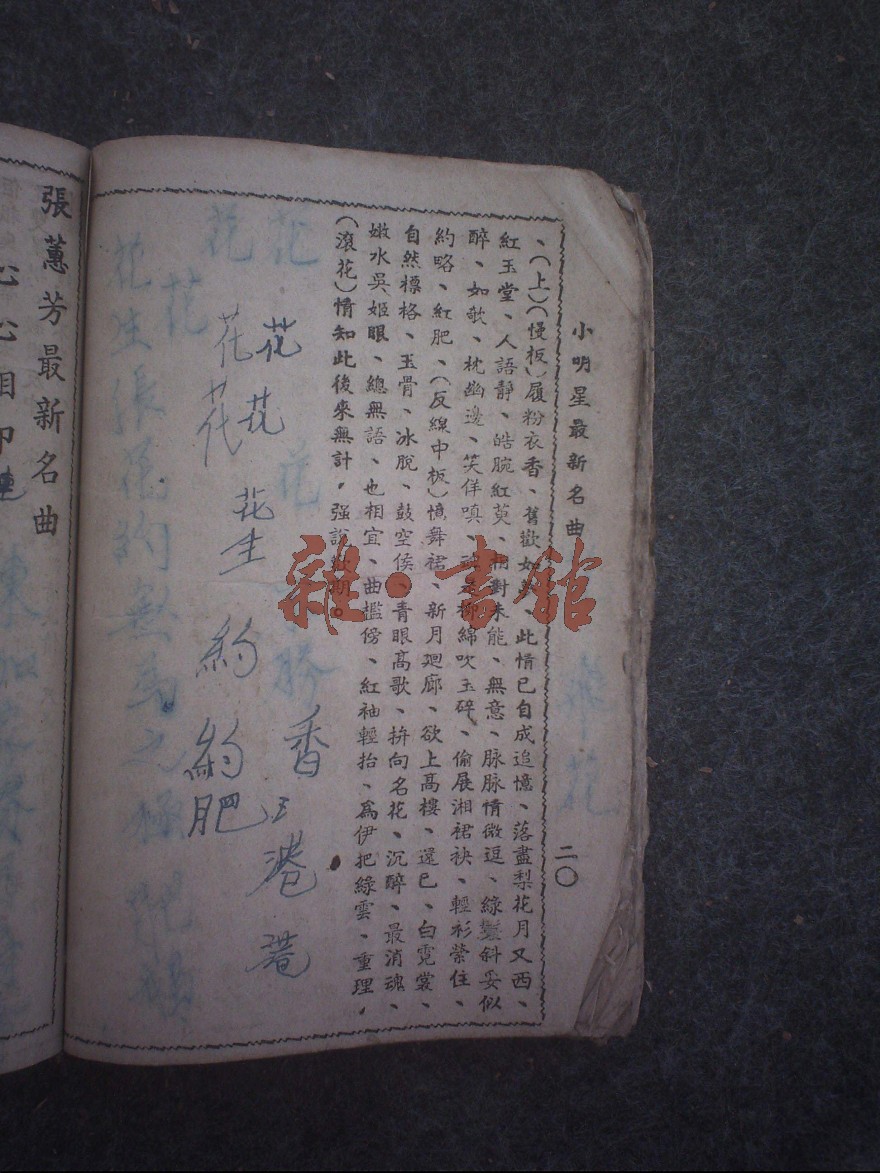 小明星最新名曲
二〇
、(上)(慢板)履粉衣香、舊歡如夢、此情已自成追憶、落盡梨花月又西、
紅玉堂、人語靜、皓腕紅萸、相對未能、無意、脉脉情微逗、綠鬟斜妥似
醉、如歌、枕幽邊、笑佯嗔、柳綿吹玉碎、偷展湘裙衩、輕衫縈住、
約略、紅肥、(反線中板)憶舞裙、新月廻廊、欲上高樓、還已、白霓裳、
自然標格、玉骨、冰脫、鼓空侯、青眼高歌、拚向名花、沉醉、最消魂、
嫩水吳姬眼、總無語、也相宜、曲檻傍、紅袖輕抬、爲伊把綠雲、重理，
(滾花)情知此後來無計，强說歡期。
花 花
花 花
花
花生
約 約
肥
香
港
港
張蕙芳最新名曲
心心相印
雜·書館